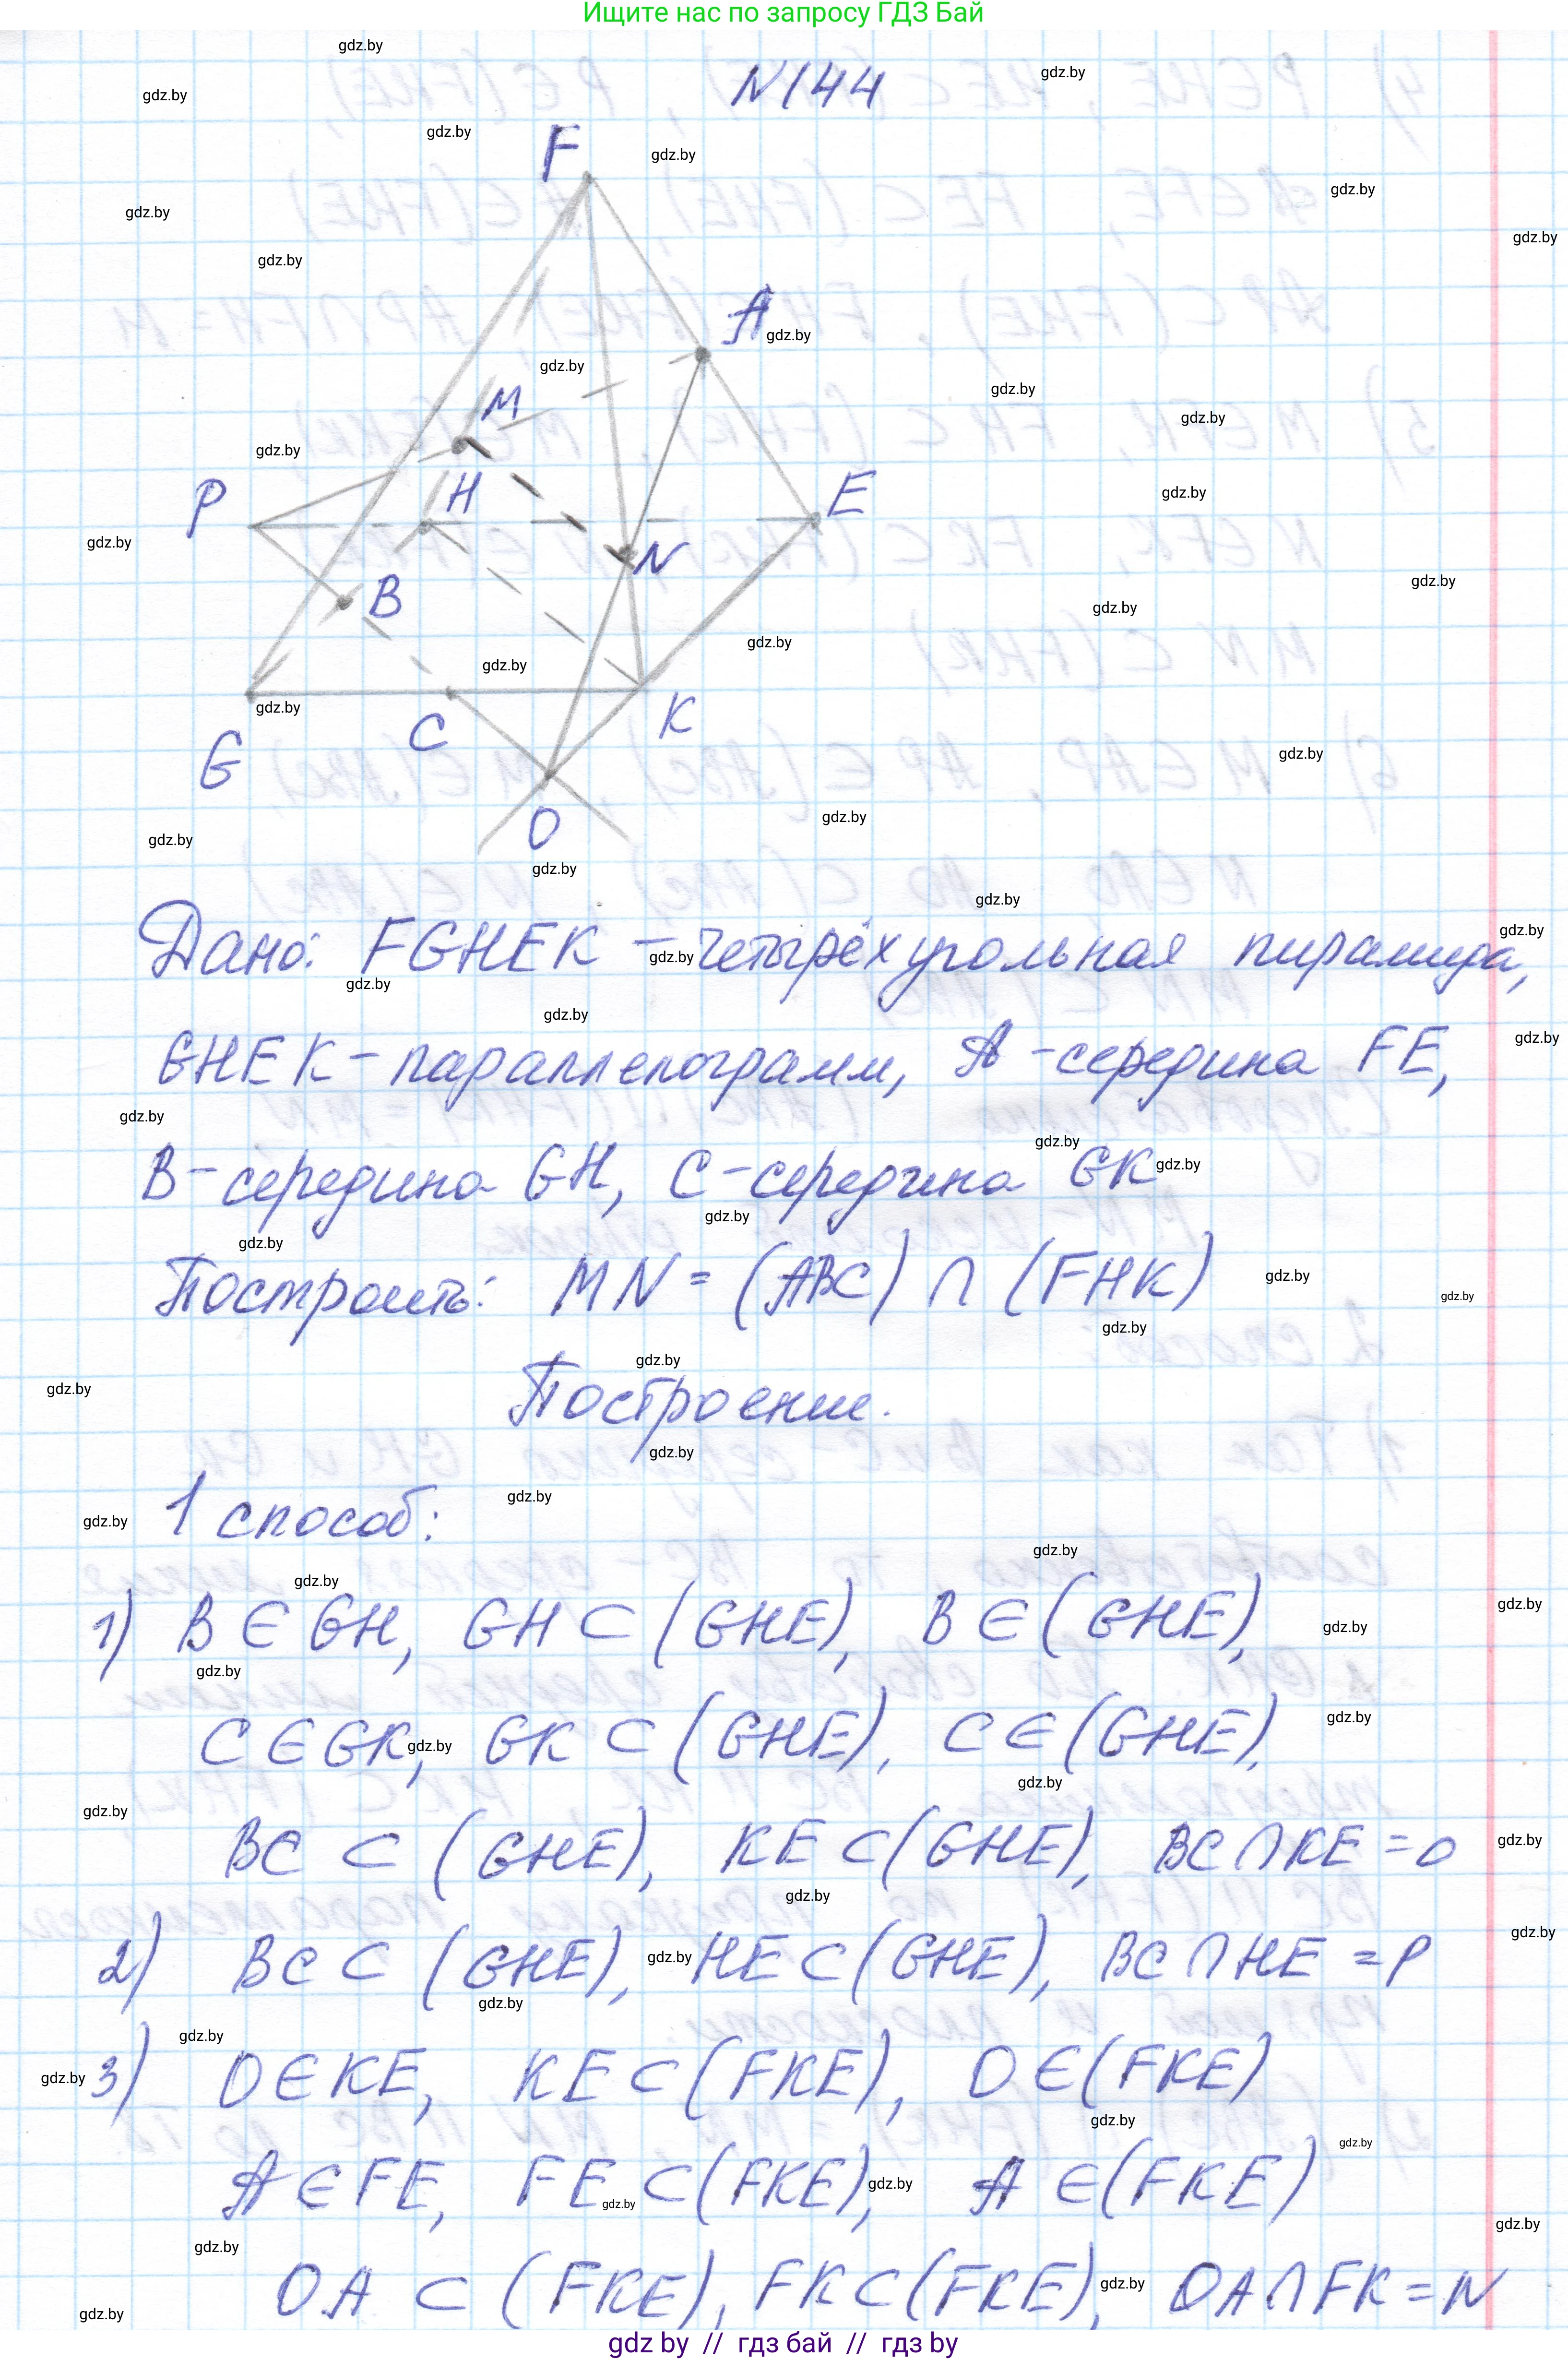 Ищите нас по запросу ГДЗ Бай
N144
F
A
M
P
H
E
N
B
G
C
K
O
Дано: FGHEK – четырёхугольная пирамида,
GHEK – параллелограмм, A – середина FE,
B – середина GH, C – середина GK
Построить: MN = (ABC) ∩ (FHK)
Построение.
1 способ:
1) B ∈ GH, GH ⊂ (GHE), B ∈ (GHE),
C ∈ GK, GK ⊂ (GHE), C ∈ (GHE),
BC ⊂ (GHE), KE ⊂ (GHE), BC ∩ KE = O
2) BC ⊂ (GHE), HE ⊂ (GHE), BC ∩ HE = P
3) O ∈ KE, KE ⊂ (FKE), O ∈ (FKE)
A ∈ FE, FE ⊂ (FKE), A ∈ (FKE)
OA ⊂ (FKE), FK ⊂ (FKE), OA ∩ FK = N
gdz by // гдз бай // гдз by